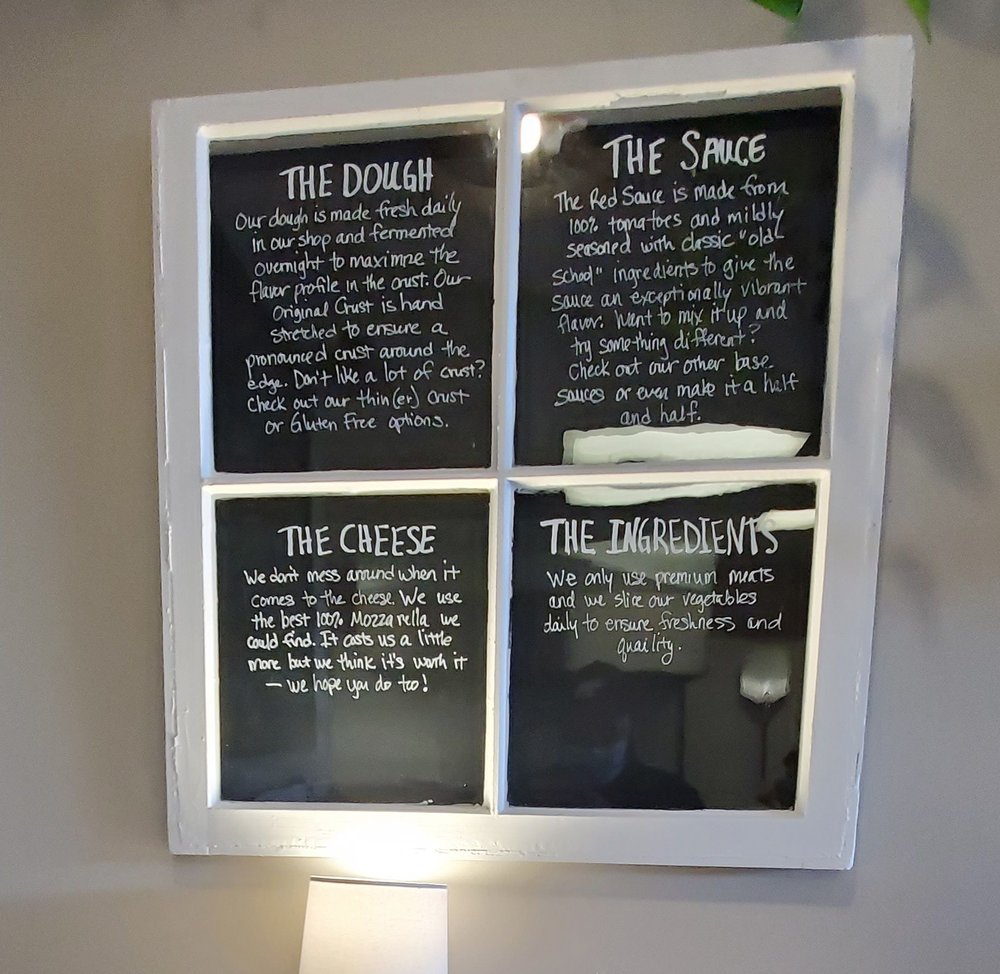 THE DOUGH
Our dough is made fresh daily
in our shop and fermented
overnight to maximne the
flavor profile in the crust. Our
Original Crust is hand
stretched to ensure a
pronounced crust around the
edge. Don't like a lot of crust?
Check out our thin(er) crust
or Gluten Free options.
THE SAUCE
The Red Sauce is made from
100% tomatoes and mildly
seasoned with classic "old
school" ingredients to give the
sauce an exceptionally vibrant
flavor. Want to mix it up and
try something different?
Check out our other base
sauces or even make it a half
and half.
THE CHEESE
We don't mess around when it
comes to the cheese. We use
the best 100% Mozzarella we
could find. It costs us a little
more but we think it's worth it
— we hope you do too!
THE INGREDIENTS
We only use premium meats
and we slice our vegetables
daily to ensure freshness and
quaility.